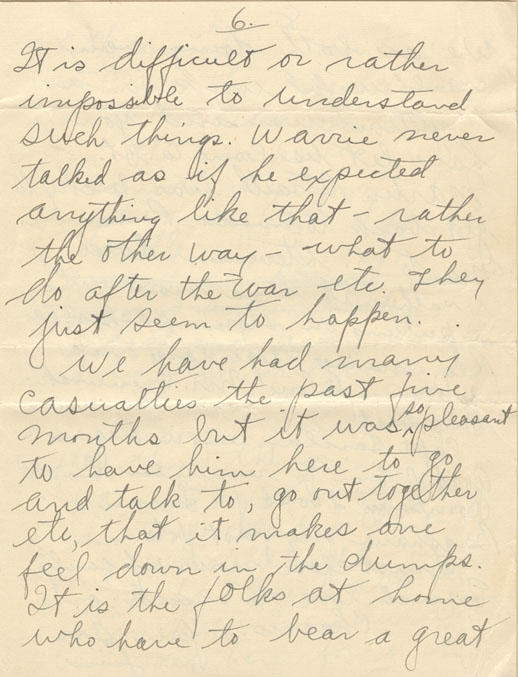 6.
It is difficult or rather
impossible to understand
such things. Warrie never
talked as if he expected
anything like that - rather
the other way - what to
do after the war etc. They
just seem to happen.
We have had many
casualties the past five
months but it was so pleasant
to have him here to go
and talk to, go out together
etc, that it makes one
feel down in the dumps.
It is the folks at home
who have to bear a great